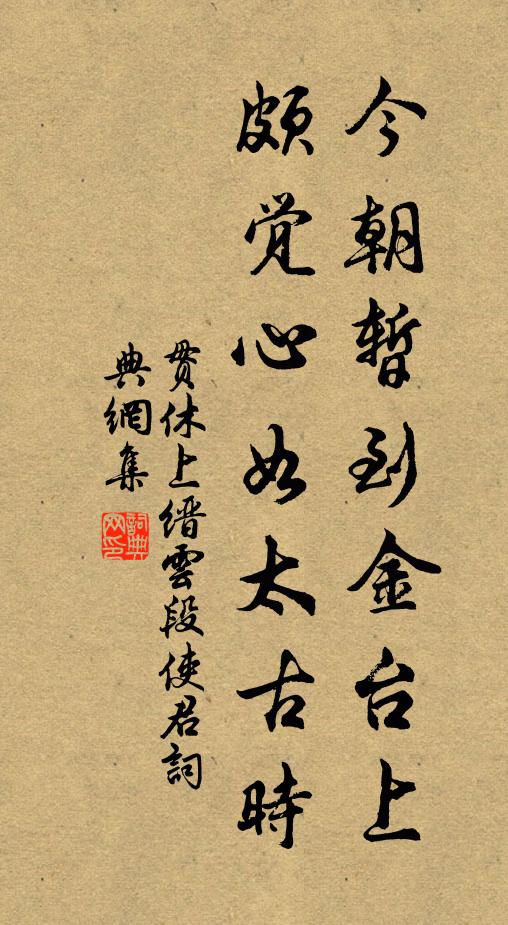 今朝暫到金台上
頗觉心如太古時
貫休上縉雲段使君詞
典網集
詞典網印